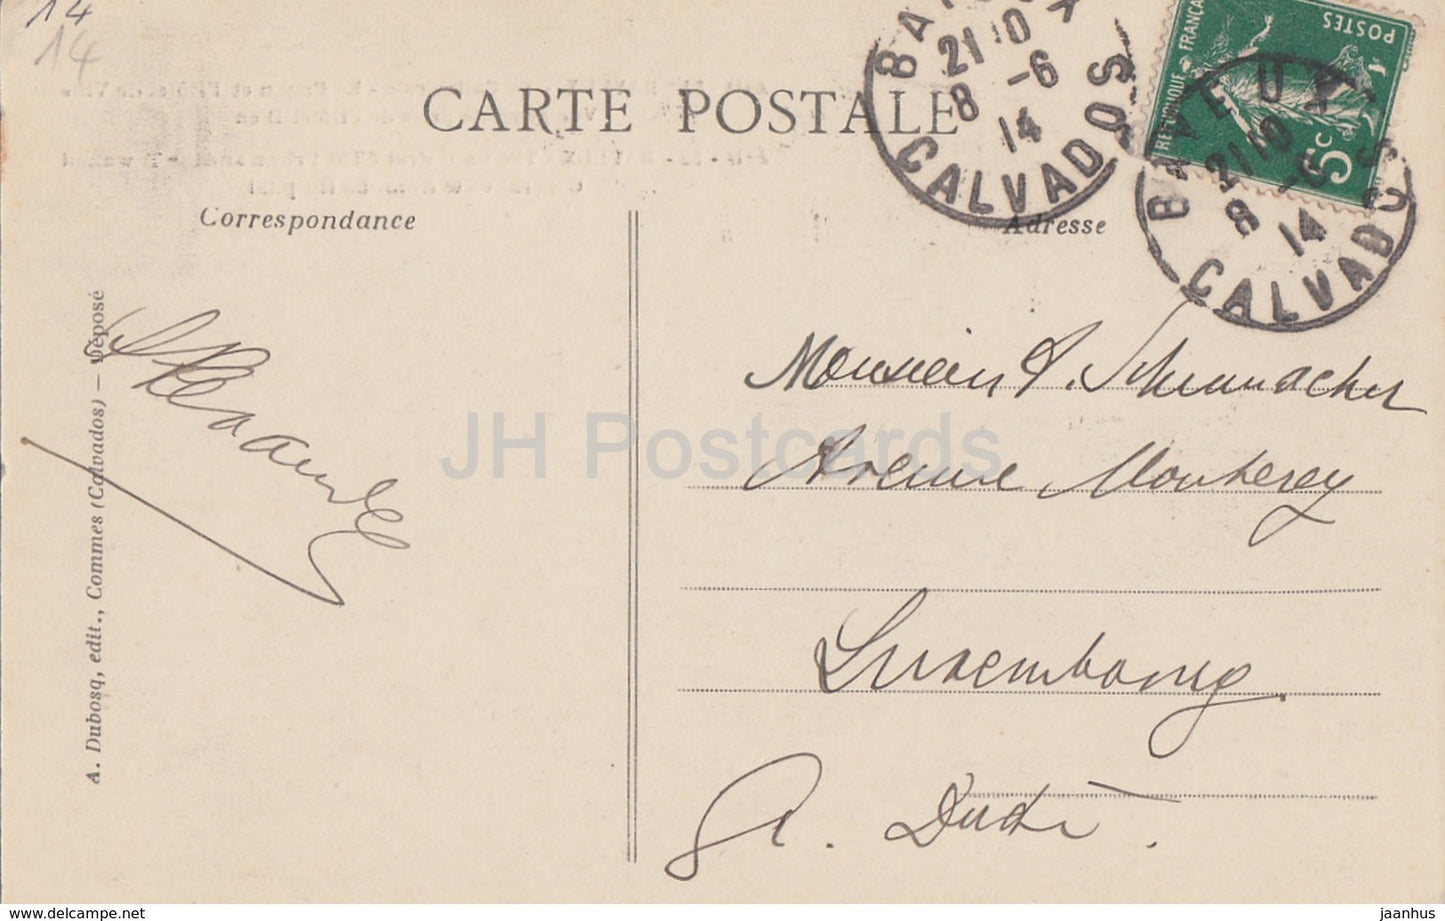 14
14
CARTE POSTALE
Correspondance
Adresse
BAYEUX
21 10
8 -6
14
CALVADOS
REPUBLIQUE FRANÇAISE
POSTES
5c
BAYEUX
21 10
8 -6
14
CALVADOS
A. Dubosq, edit., Commes (Calvados) — Déposé
Monsieur P. Schumacher
Avenue Monterey
Luxembourg.
G. Duché.
JH Postcards
delcampe.net
jaanhus